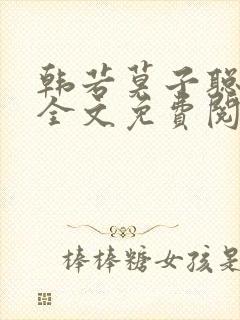 韩若莫子聪
全文免费阅
棒棒糖女孩是